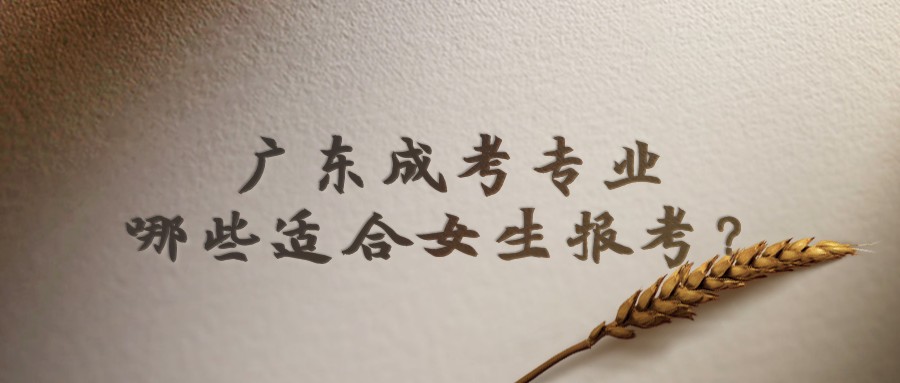 广东成考专业
哪些适合女生报考？